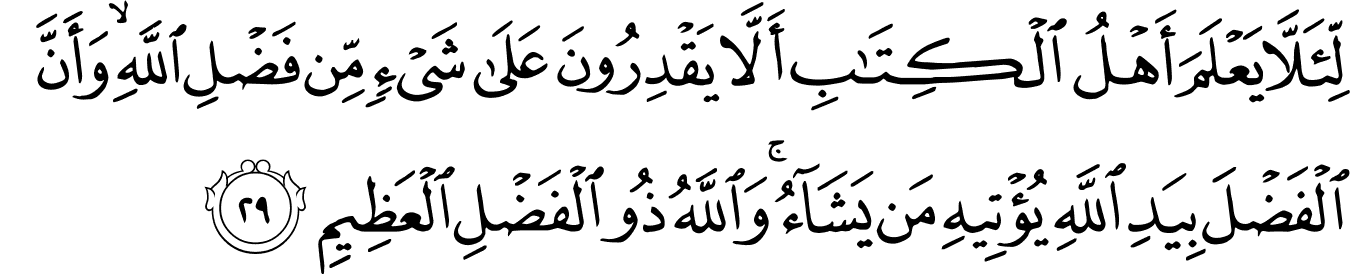 لِّئَلَّا يَعْلَمَ أَهْلُ ٱلْكِتَٰبِ أَلَّا يَقْدِرُونَ عَلَىٰ شَىْءٍ مِّن فَضْلِ ٱللَّهِ ۙ وَأَنَّ
ٱلْفَضْلَ بِيَدِ ٱللَّهِ يُؤْتِيهِ مَن يَشَآءُ ۚ وَٱللَّهُ ذُو ٱلْفَضْلِ ٱلْعَظِيمِ ٢٩